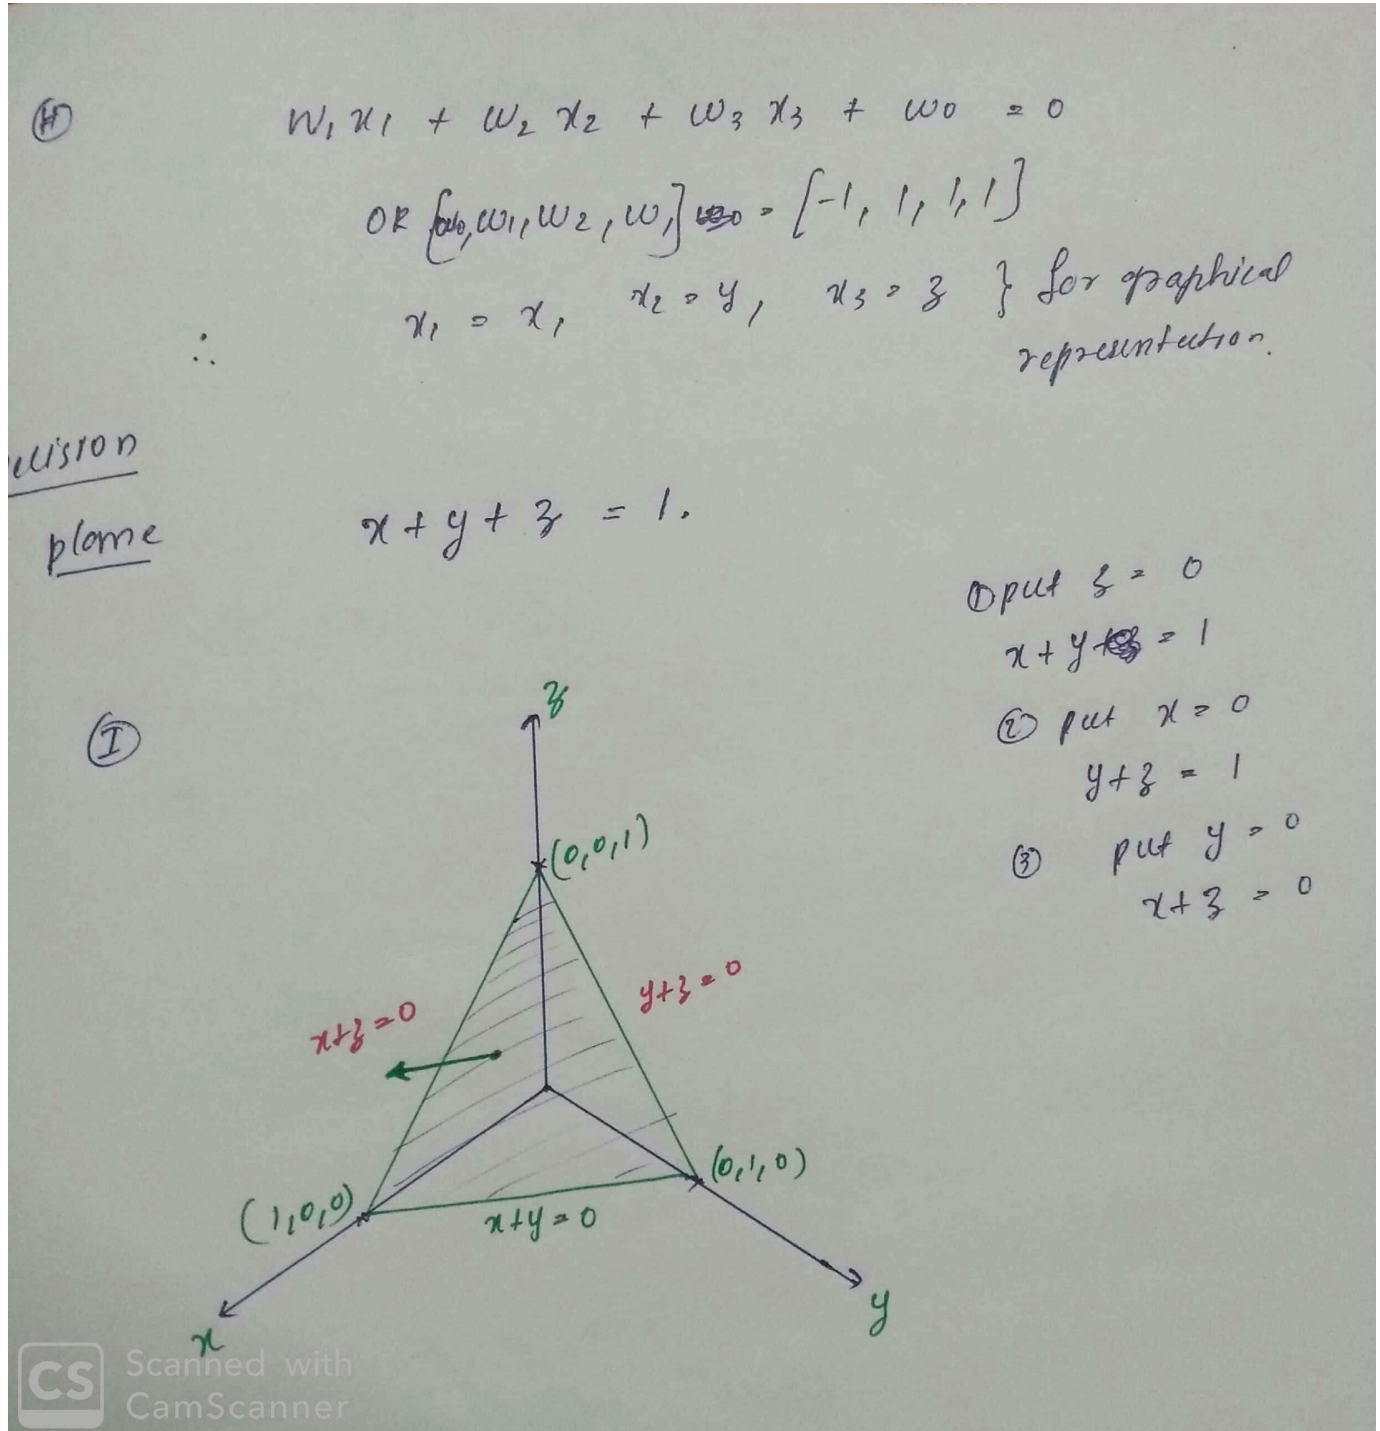 (H) w₁x₁ + w₂x₂ + w₃x₃ + w₀ = 0
OR [w₀, w₁, w₂, w₃] = [-1, 1, 1, 1]
∴ x₁ = x, x₂ = y, x₃ = z } for graphical
representation.
plane x + y + z = 1.
① put z = 0
x + y = 1
② put x = 0
y + z = 1
③ put y = 0
x + z = 0
(I)
z
(0,0,1)
y+z=0
x+z=0
(0,1,0)
(1,0,0)
x+y=0
y
x
CS Scanned with
CamScanner